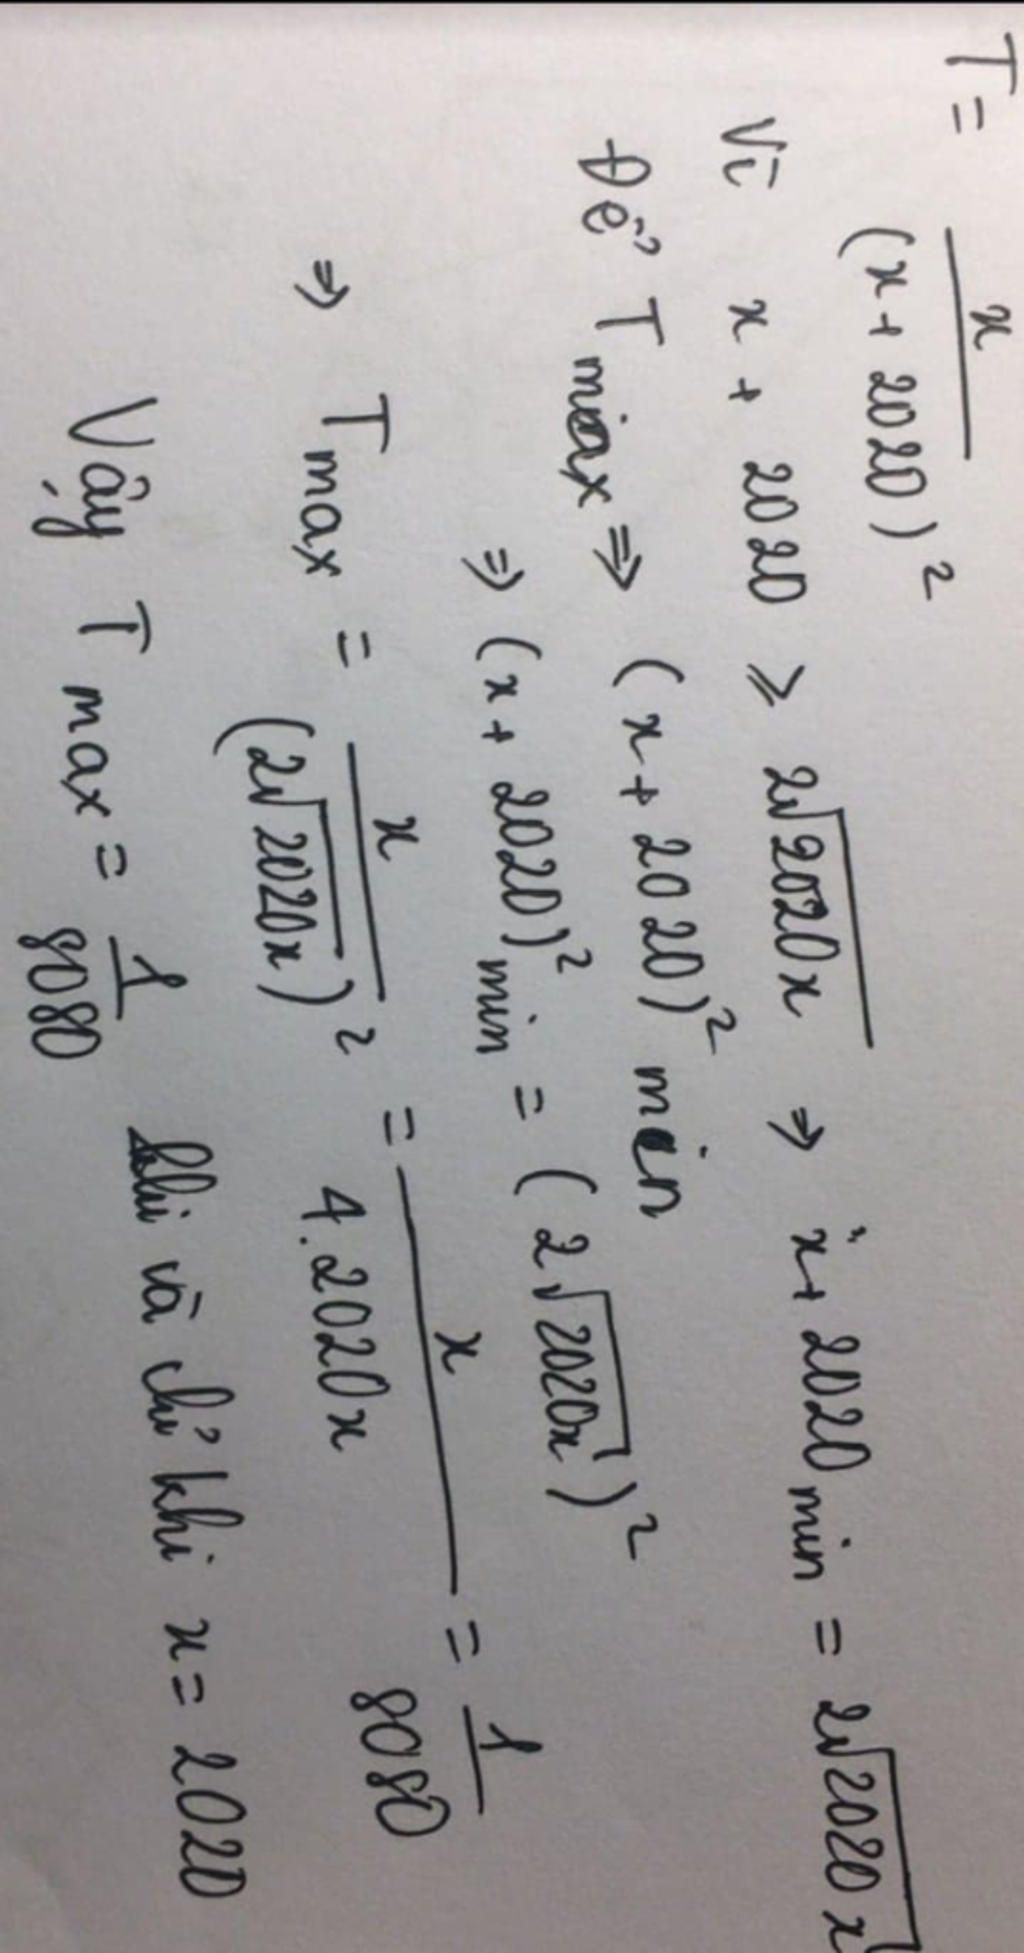 T = x/(x + 2020)²
Vì x + 2020 ≥ 2√2020x ⇒ x + 2020 min = 2√2020x
Để T max ⇒ (x + 2020)² min
⇒ (x + 2020)² min = (2√2020x)²
⇒ T max = x/(2√2020x)² = x/4.2020x = 1/8080
Vậy T max = 1/8080 khi và chỉ khi x = 2020